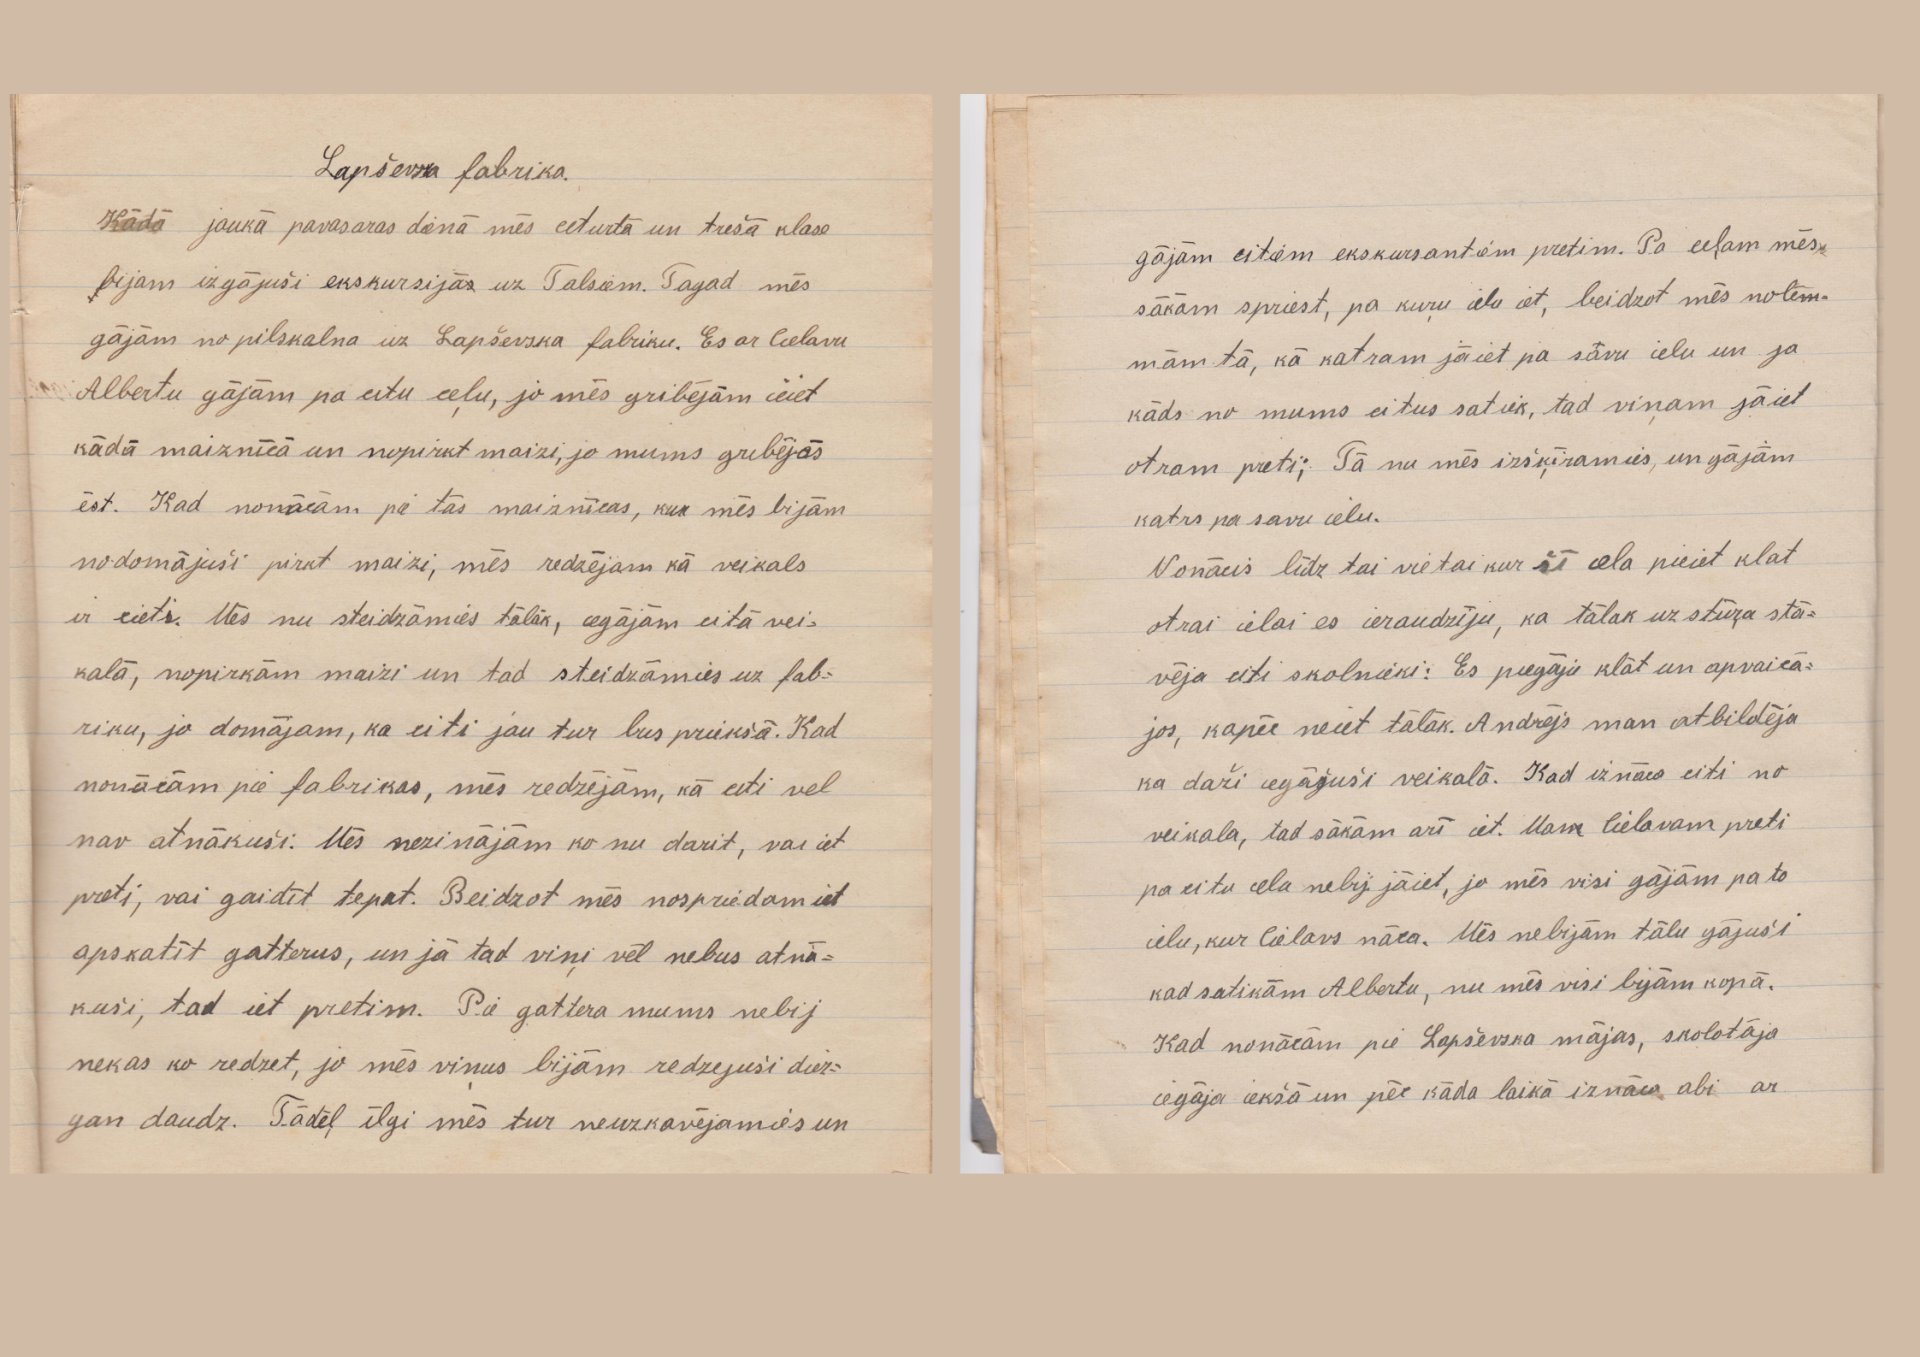 Lapševska fabrika.
Kādā jaukā pavasaras dienā mēs ceturtā un trešā klase
bijam izgājuši ekskursijās uz Talsiem. Tagad mēs
gājām no pilskalna uz Lapševska fabriku. Es ar Cielavu
Albertu gājām pa citu ceļu, jo mēs gribējām ieiet
kādā maiznīcā un nopirkt maizi, jo mums gribējās
ēst. Kad nonācām pie tās maiznīcas, kur mēs bijām
nodomājuši pirkt maizi, mēs redzējam kā veikals
ir cieti. Mēs nu steidzāmies tālāk, iegājām citā vei-
kalā, nopirkām maizi un tad steidzāmies uz fab-
riku, jo domājam, ka citi jau tur bus priekšā. Kad
nonācām pie fabrikas, mēs redzējām, kā citi vel
nav atnākuši. Mēs nezinājām ko nu darit, vai iet
preti, vai gaidīt tepat. Beidzot mēs nospriedam iet
apskatīt gatterus, un jā tad viņi vēl nebus atnā-
kuši, tad iet pretim. Pie gattera mums nebij
nekas ko redzet, jo mēs viņus bijām redzejuši diez-
gan daudz. Tādēļ ilgi mēs tur neuzkavējamies un
gājām citiem ekskursantiem pretim. Pa ceļam mēs
sākām spriest, pa kuŗu ielu iet, beidzot mēs nolēm-
mām tā, kā katram jāiet pa sāvu ielu un ja
kāds no mums citus satiek, tad viņam jāiet
otram preti; Tā nu mēs izšķīramies, un gājām
katrs pa savu ielu.
Nonācis līdz tai vietai kur šī iela pieiet klat
otrai ielai es ieraudzīju, ka tālak uz stūŗa stā-
vēja citi skolnieki: Es piegāju klāt un apvaicā-
jos, kapēc neiet tālāk. Andrējs man atbildēja
ka daži iegājuši veikalā. Kad iznāca citi no
veikala, tad sākām arī iet. Man Cielavam preti
pa citu ielu nebij jāiet, jo mēs visi gājām pa to
ielu, kur Cielavs nāca. Mēs nebijām tālu gājuši
kad satikām Albertu, nu mēs visi bijām kopā.
Kad nonācām pie Lapševska mājas, skolotāja
iegāja iekšā un pēc kāda laikā iznāca abi ar